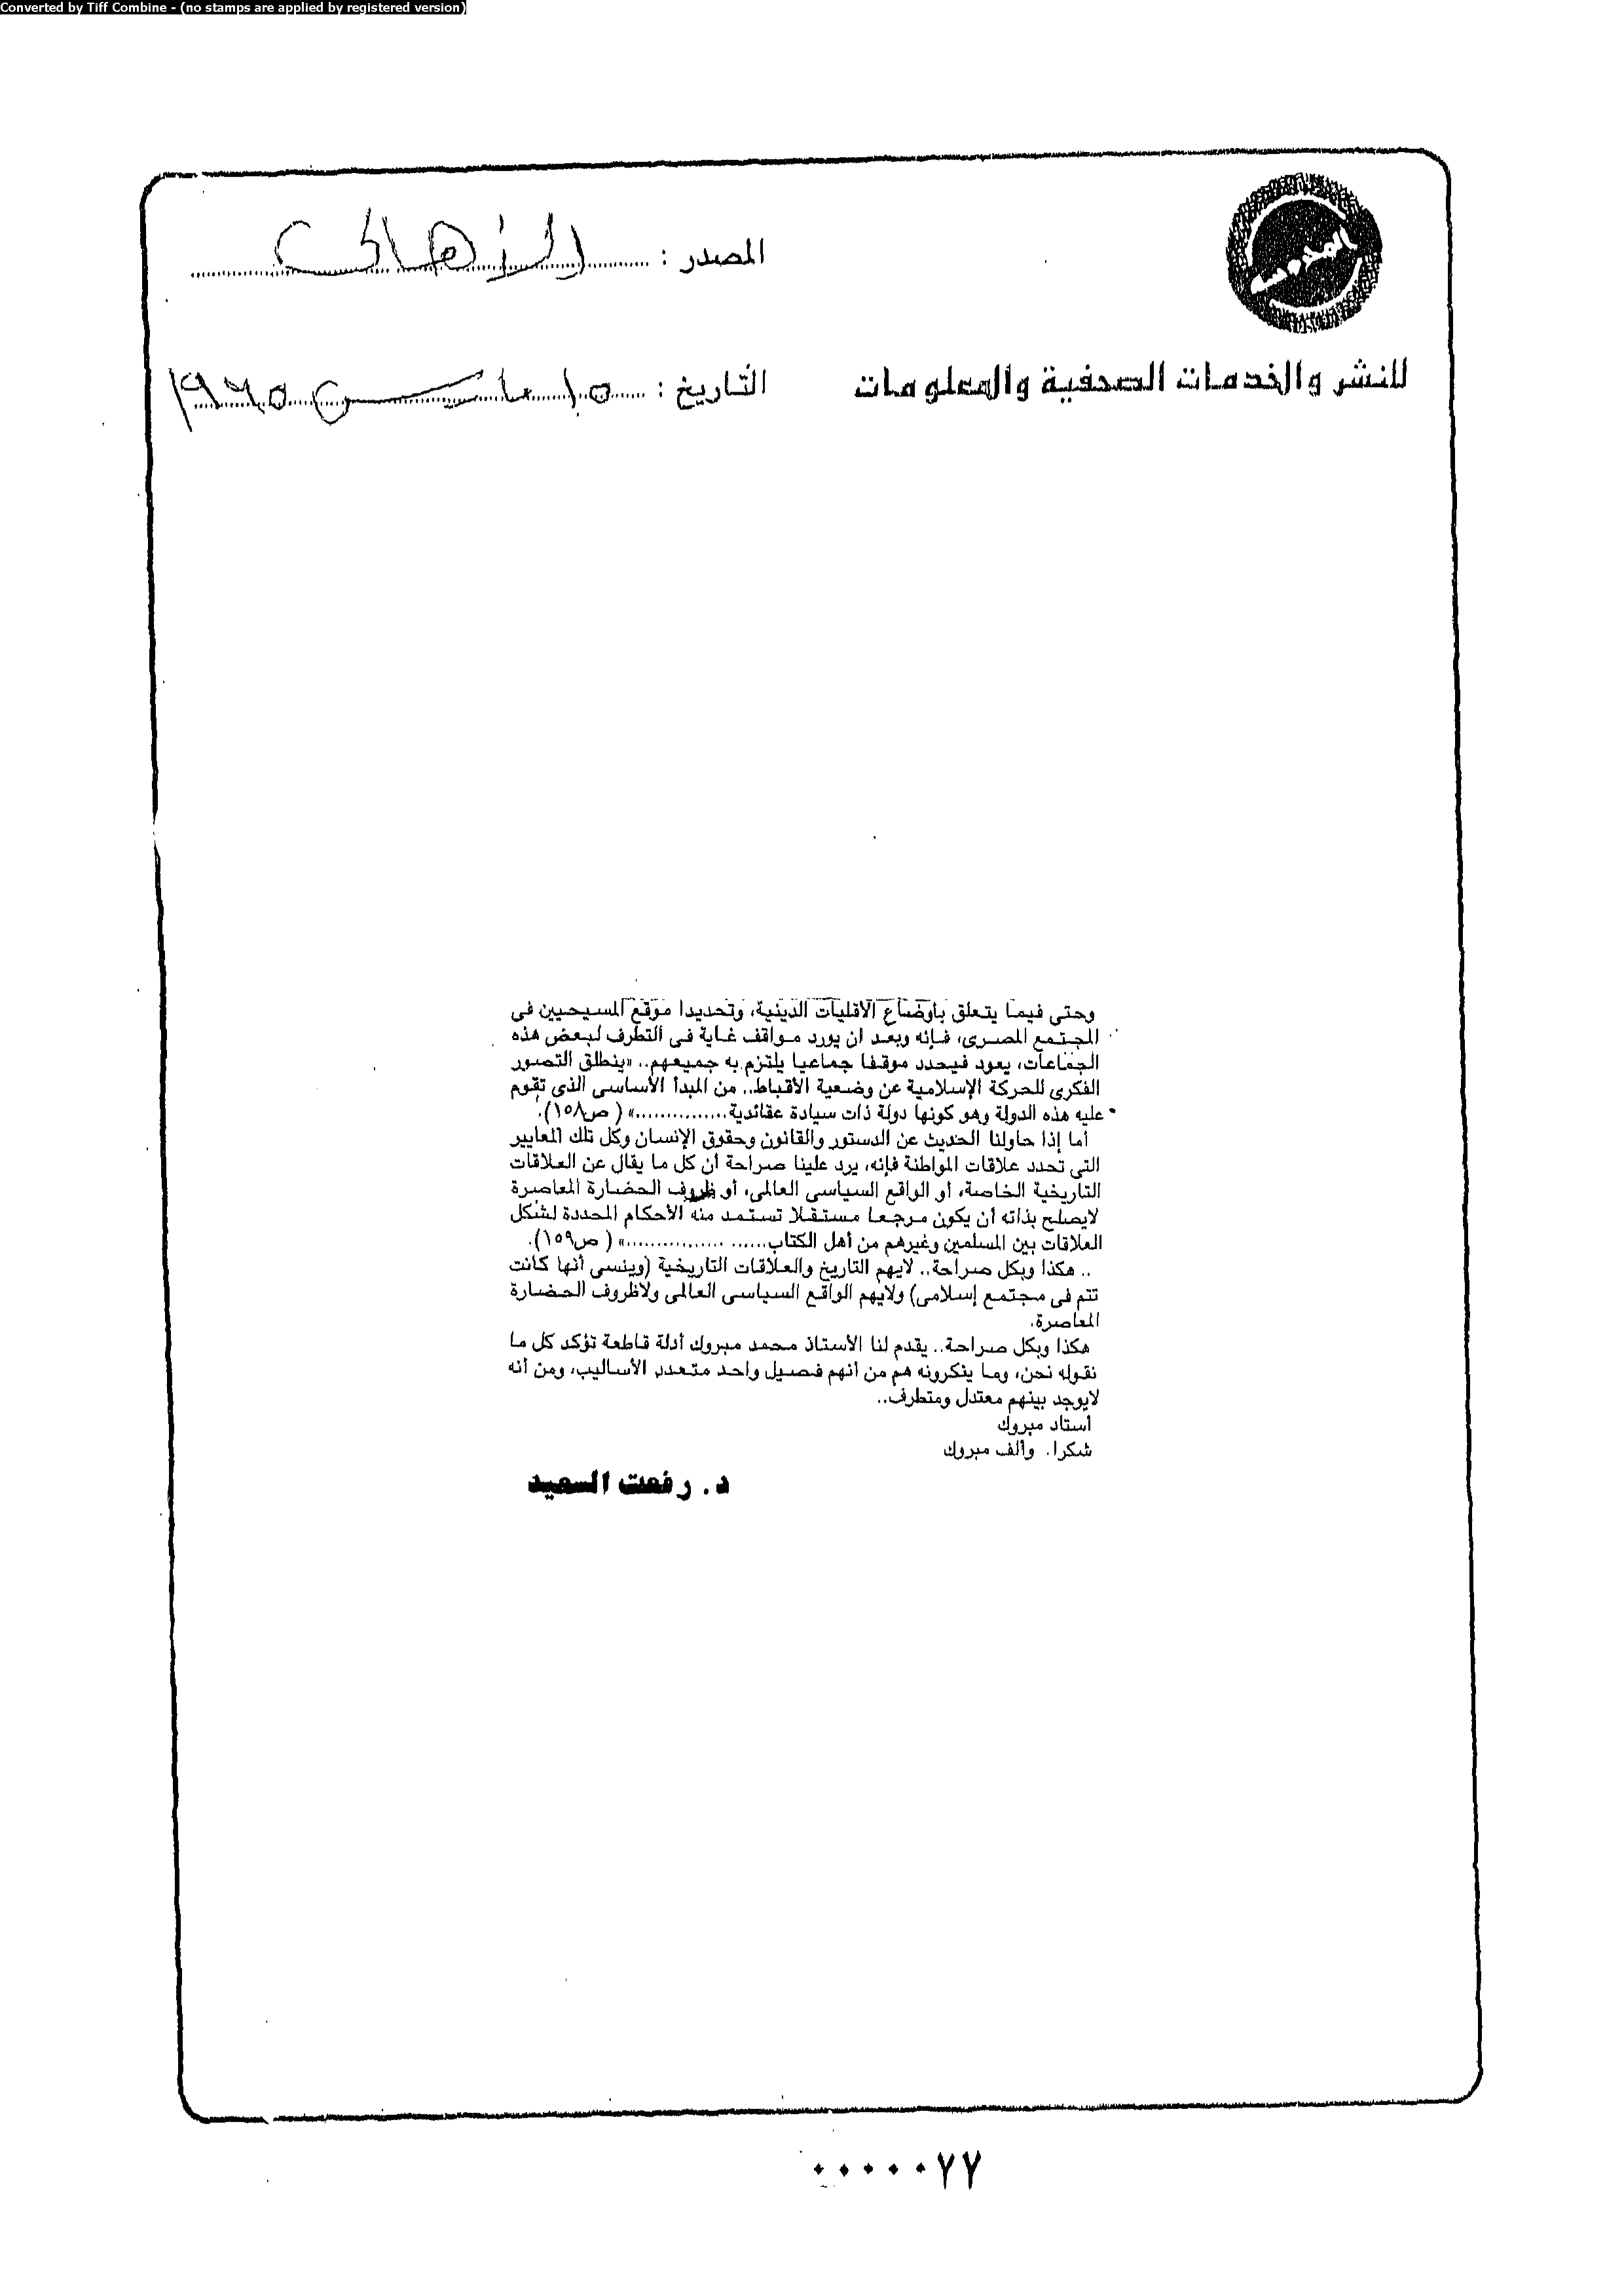 Converted by Tiff Combine - (no stamps are applied by registered version)
المصدر : الأهالى
للنشر والخدمات الصحفية والمعلومات
التاريخ : ١٥ مارس
وحتى فيما يتعلق بأوضاع الأقليات الدينية، وتحديدا موقع المسيحيين فى
المجتمع المصرى، فإنه وبعد أن يورد مواقف غاية فى التطرف لبعض هذه
الجماعات، يعود فيحدد موقفا جماعيا يلتزم به جميعهم.. «ينطلق التصور
الفكرى للحركة الإسلامية عن وضعية الأقباط.. من المبدأ الأساسى الذى تقوم
عليه هذه الدولة وهو كونها دولة ذات سيادة عقائدية..............» ( ص١٥٨).
أما إذا حاولنا الحديث عن الدستور والقانون وحقوق الإنسان وكل تلك المعايير
التى تحدد علاقات المواطنة فإنه، يرد علينا صراحة أن كل ما يقال عن العلاقات
التاريخية الخاصة، أو الواقع السياسى العالمى، أو ظروف الحضارة المعاصرة
لايصلح بذاته أن يكون مرجعا مستقلا تستمد منه الأحكام المحددة لشكل
العلاقات بين المسلمين وغيرهم من أهل الكتاب...... ................» ( ص١٥٩).
.. هكذا وبكل صراحة.. لايهم التاريخ والعلاقات التاريخية (وينسى أنها كانت
تتم فى مجتمع إسلامى) ولايهم الواقع السياسى العالمى ولاظروف الحضارة
المعاصرة.
هكذا وبكل صراحة.. يقدم لنا الأستاذ محمد مبروك أدلة قاطعة تؤكد كل ما
نقوله نحن، وما ينكرونه هم من أنهم فصيل واحد متعدد الأساليب، ومن أنه
لايوجد بينهم معتدل ومتطرف..
أستاد مبروك
شكرا. وألف مبروك
د. رفعت السعيد
٠٠٠٠٠٧٧